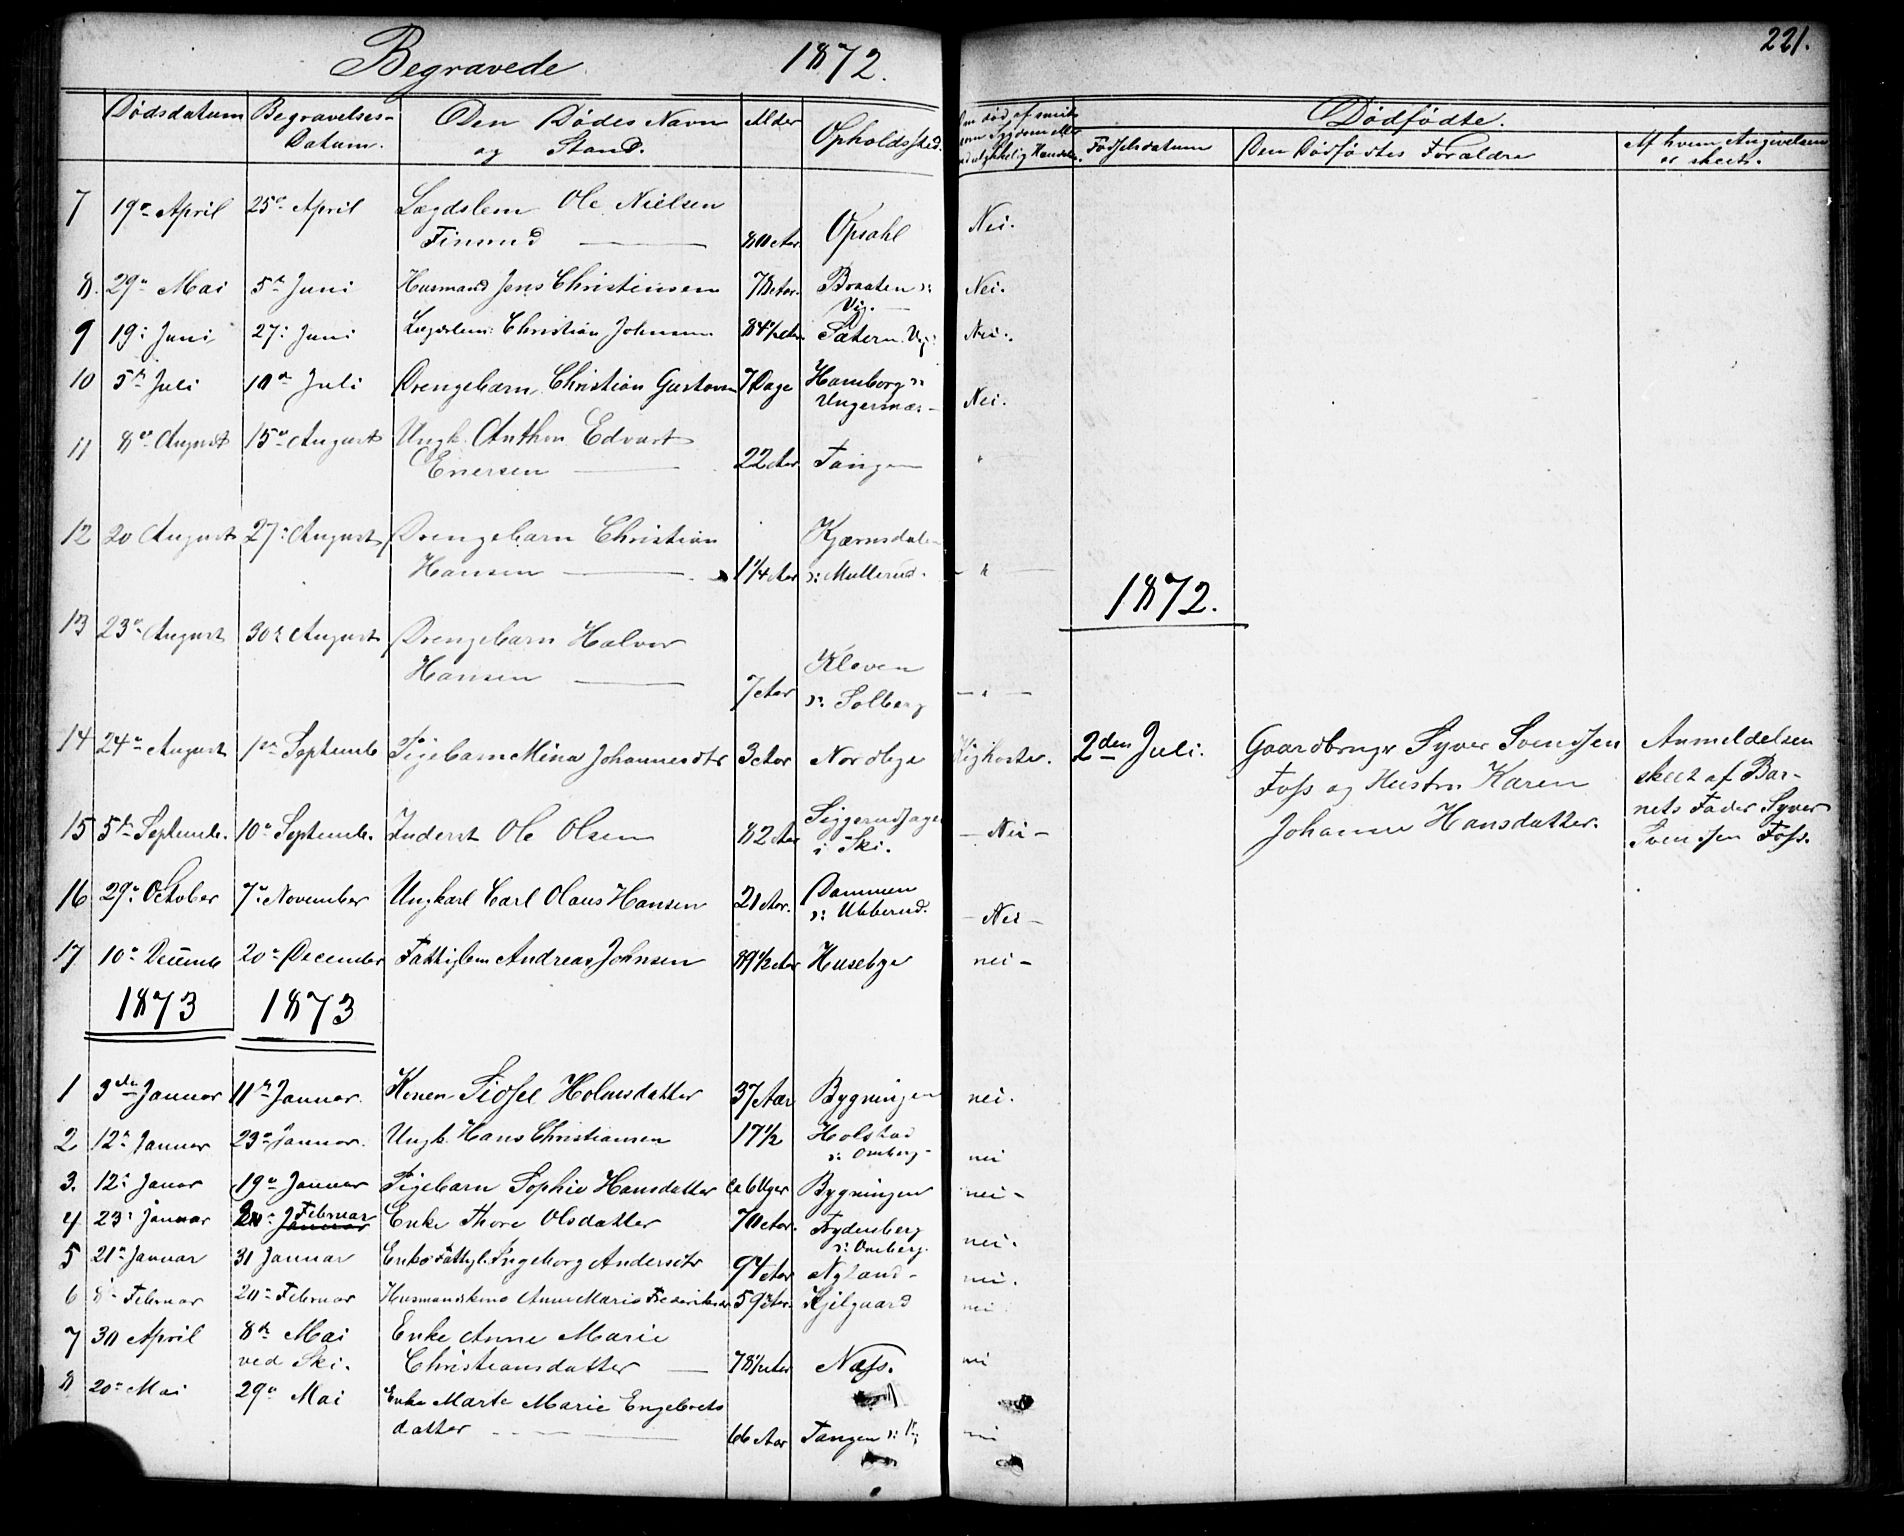 Begravede 1872.
221.
Dødsdatum Begravelses- Datum. Den Dødes Navn og Stand. Alder Opholdssted.
Dødfødte.
Fødselsdatum Den Dødfødtes Forældre Af hvem Angivelsen er skeet.
7 19de April 25de April Lægdslem Ole Nielsen
Finsrud 80 Aar Opsahl Nei.
8. 29de Mai 5te Juni Husmand Jens Christensen 78 Aar. Braaten ɔ:
Vig. Nei.
9 19: Juni 27: Juni Lægdslem: Christian Johnsen 84½ Aar Sætern Nei.
10 5te Juli 10de Juli Drengebarn Christian Gustavsen 7 Dage Hamborg ɔ:
Ungersnæs Nei.
11 8de August 15de August Ungk. Anthon Edvart
Enersen 22 Aar Tangen "
12 20 August 27: August Drengebarn Christian Kjærnsdalen
Hansen 1¼ Aar ɔ: Mullerud. "
1872.
13 23de August 30te August Drengebarn Halvor
Hansen 7 Aar Kleven
ɔ: Solberg "
14 24de August 1ste Septemb. Pigebarn Mina Johannesdtr 3 Aar Nordbye Kighoste.
2den Juli. Gaardbruger Syver Svendsen
Foss og Hustru Karen
Johanne Hansdatter.
Anmeldelsen
skeet af Bar-
nets Fader Syver
Svendsen Foss.
15 5te Septemb. 10de Septemb. Inderst Ole Olsen 82 Aar
i Ski. Nei
16 29de October 7de November Ungkarl Carl Olaus Hansen 21 Aar. Dammen
ɔ: Ubberud. Nei
17 10de Decemb 20de December Fattiglem Andreas Johnsen 89½ Aar Husebye nei
1873 1873
1 3die Januar 11te Januar. Konen Sidsel Holmsdatter 37 Aar Bygningen nei.
2 12te Januar 23de Januar. Ungk. Hans Christiansen 17½ Holstad
ɔ: Omberg nei
3. 12te Januar 19de Januar Pigebarn Sophie Hansdatter ca 6 Uger Bygningen nei
4 23de Januar Februar Januar Enke Thore Olsdatter 70 Aar. Frydenberg
ɔ: Omberg. nei.
5 21de Januar 31 Januar Enke Fattigl. Ingeborg Andersdtr 94 Aar Nyland nei.
6 8de Februar 20de Februar Husmandskone Anne Marie 59 Aar. Kjilgaard nei
7 30 April 8de Mai Enke Anne Marie
ved Ski. Christiansdatter 78½ Aar Næss. nei
8 20de Mai 29de Mai Enke Marte Marie Engebrets
datter 66 Aar Tangen nei